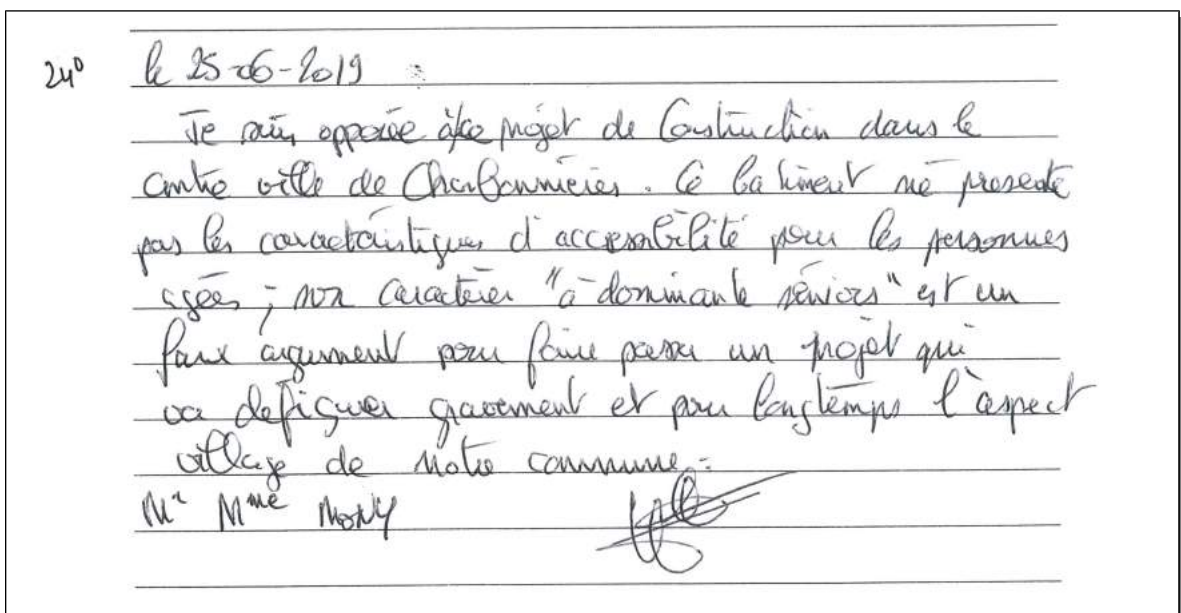 24° le 25-06-2019
Je suis opposée à ce projet de Construction dans le
centre ville de Charbonnières. Ce batiment ne presente
pas les caractéristiques d'accessibilité pour les personnes
agées ; son caractère "à dominante séniors" est un
faux argument pour faire passer un projet qui
va defigurer gravement et pour longtemps l'aspect
village de notre commune.
Mr Mme MONY